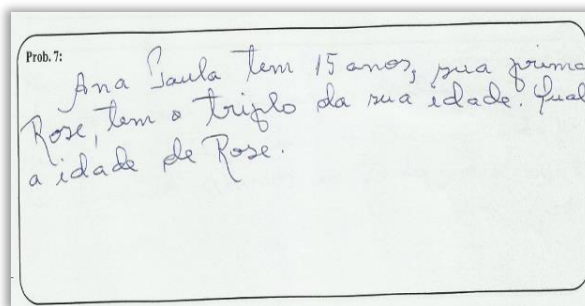 Prob. 7:
Ana Paula tem 15 anos, sua prima
Rose, tem o triplo da sua idade. Qual
a idade de Rose.